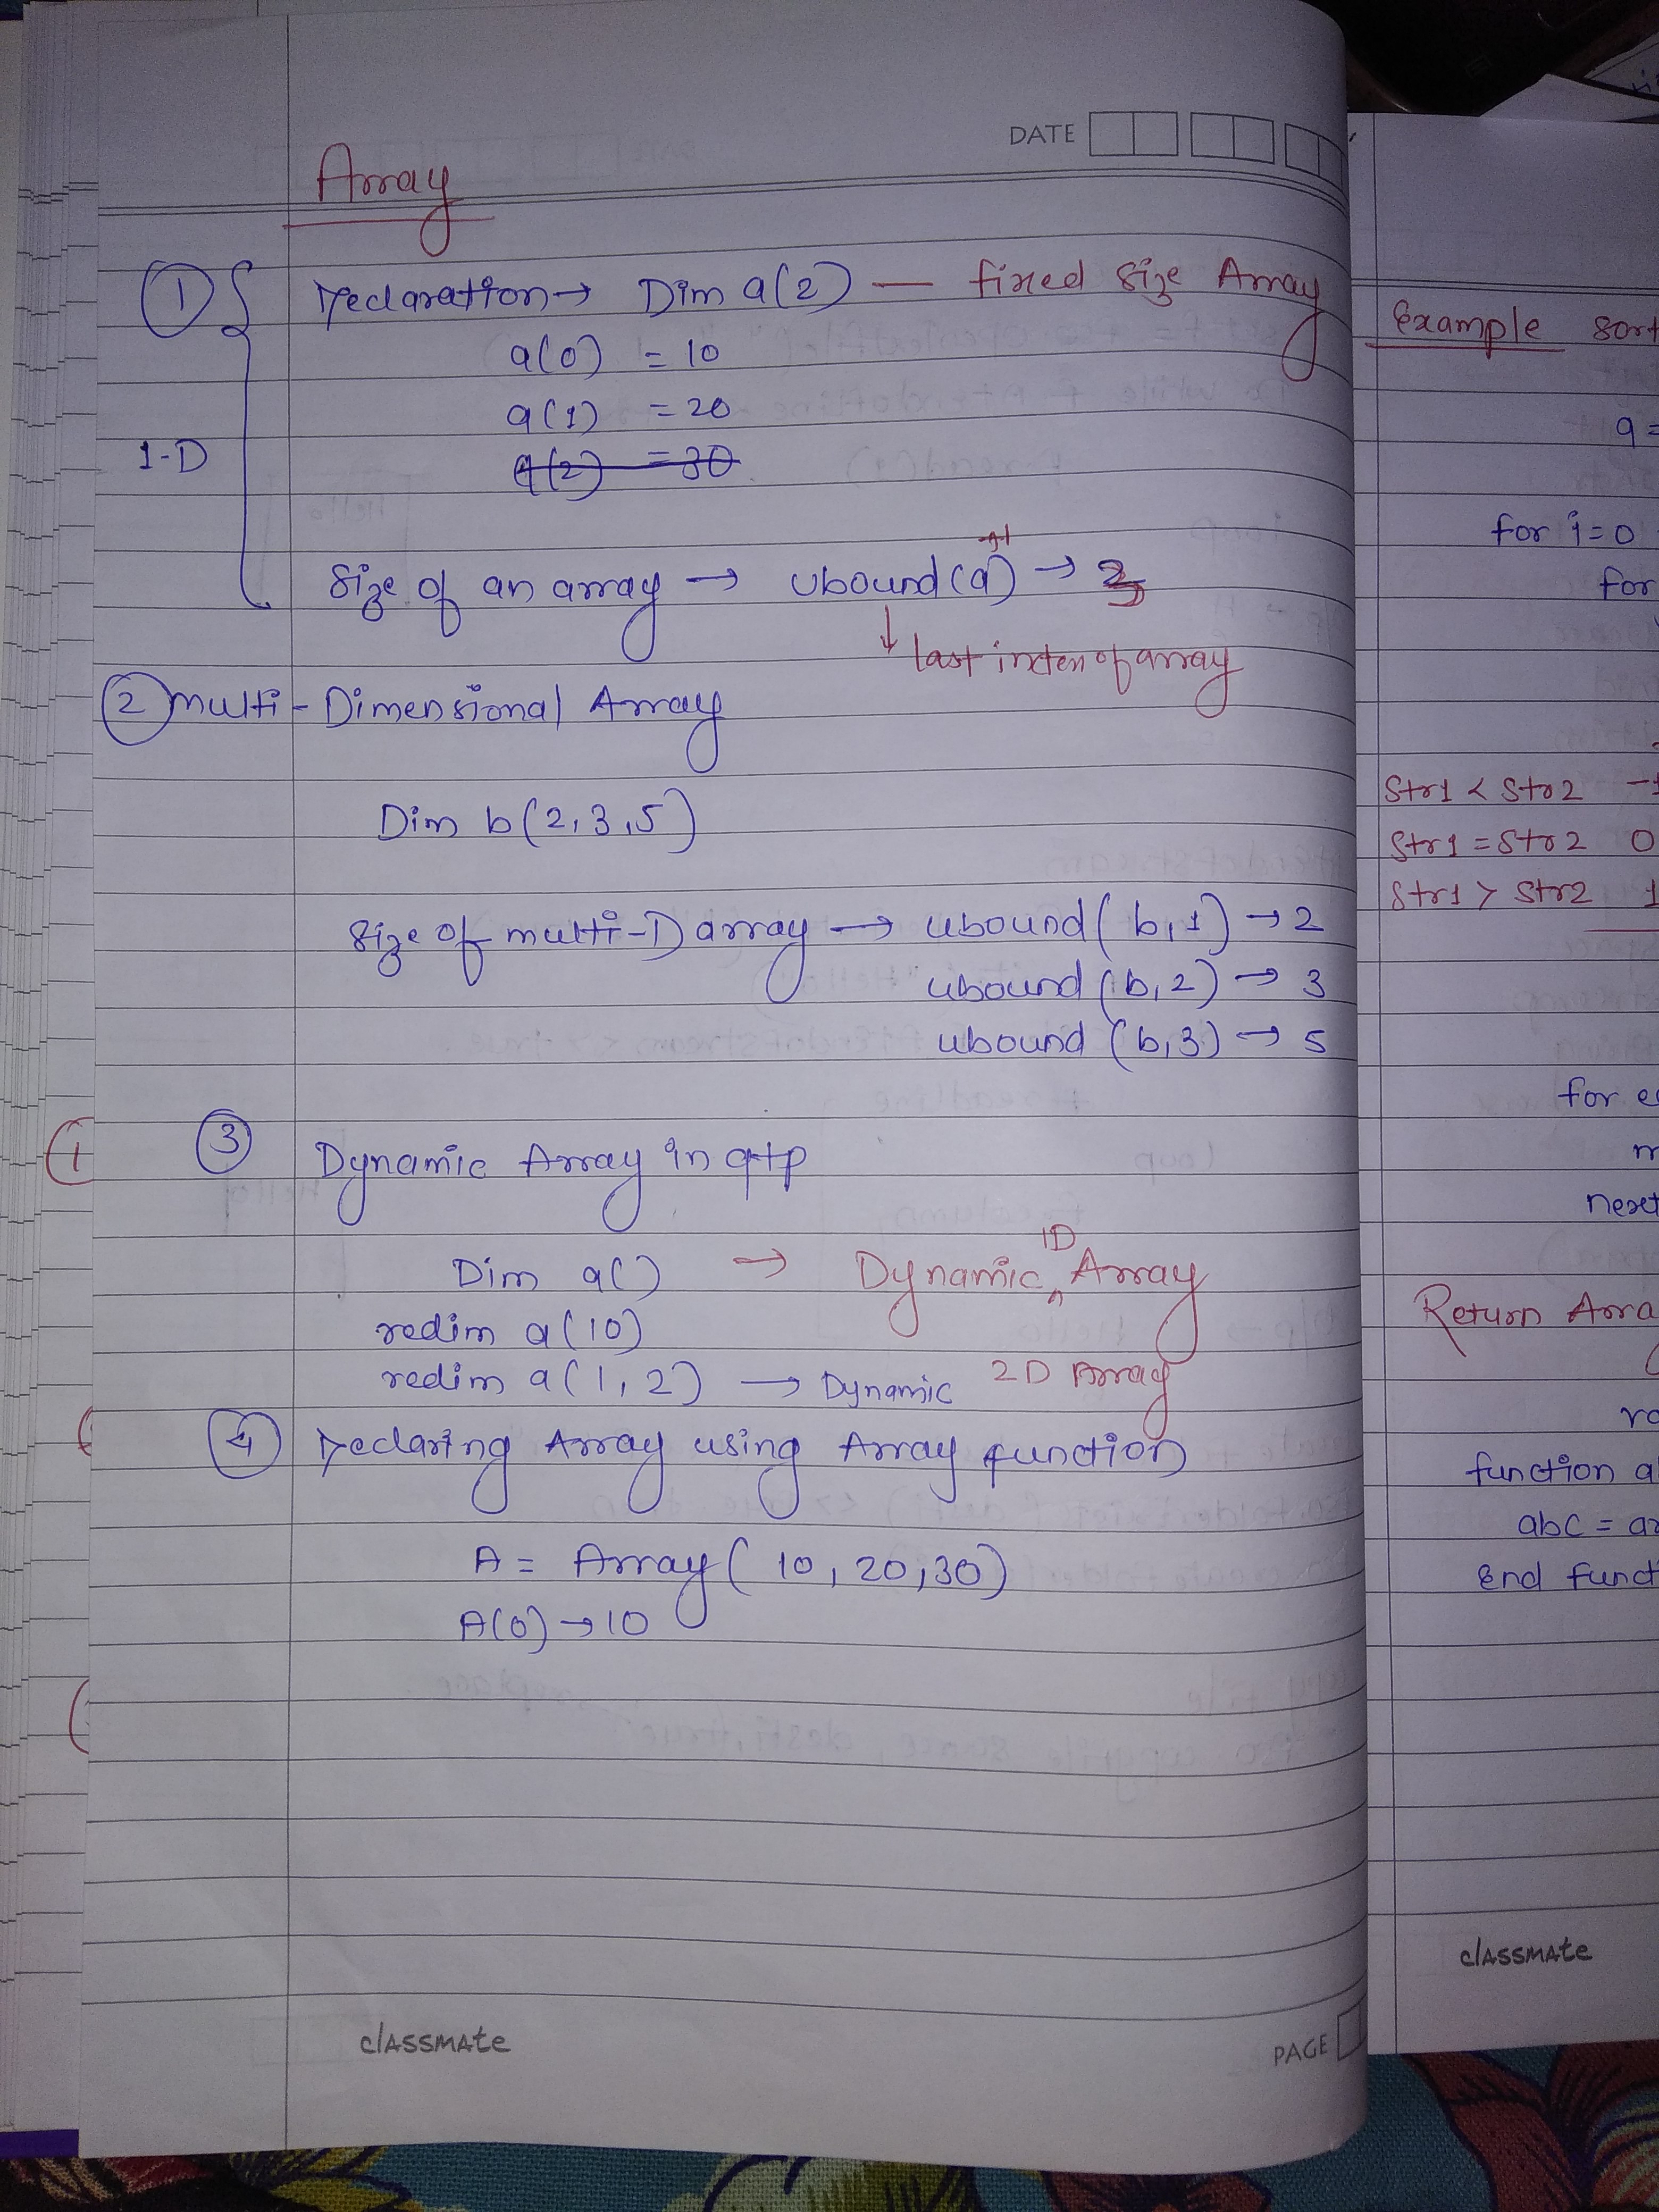 DATE
Array
① Declaration → Dim a(2) — fixed size Array
a(0) = 10
a(1) = 20
1-D
a(2) = 30
+1
size of an array → ubound(a) → 3
↓ last index of array
② multi-Dimensional Array
Dim b(2,3,5)
size of multi-D array → ubound(b,1) → 2
ubound(b,2) → 3
ubound(b,3) → 5
③ Dynamic Array in qtp
Dim a() → Dynamic 1D Array
redim a(10)
redim a(1,2) → Dynamic 2D Array
④ Declaring Array using Array function
A = Array(10,20,30)
A(0) → 10
classmate
PAGE
Example sort
a =
for i=0
for
str1 < str2 -1
str1 = str2 0
str1 > str2 1
for
next
Return
function
abc =
End
classmate